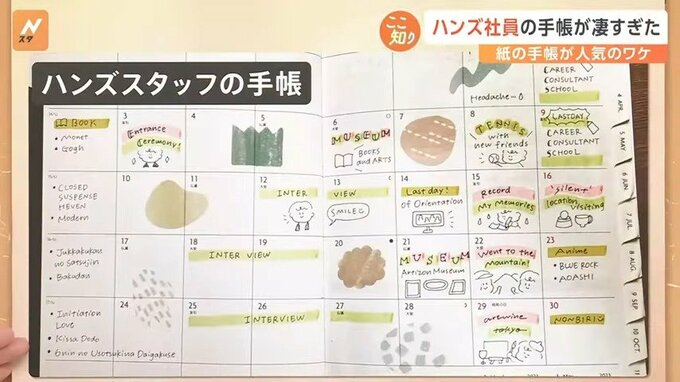 N
スタ
ここ
知り
ハンズ社員の手帳が凄すぎた
紙の手帳が人気のワケ
ハンズスタッフの手帳
Headache
CAREER
CONSULTANT
SCHOOL
BOOK
• Monet
• Gogh
3
Entrance
Ceremony!
4
5
6
MUSEUM
BOOKS
and ARTS
7
8
TENNIS
with
new friends
9
LASTDAY
CAREER
CONSULTANT
SCHOOL
• CLOSED
SUSPENSE
HEVEN
• Modern
10
11
12
INTER
13
VIEW
SMILE
14
Last day!
of Orientation
15
Record
My Memories
16
"silent"
location
visiting
• Jukkakukan
no Satsujin
• Bakudan
17
18
INTERVIEW
19
20
21
MUSEUM
Artizon Museum
22
Went to the
mountain!
23
Anime
• BLUE ROCK
• AOASHI
• Initiation
Love
• Kissa Dodo
• 6nin no Usotsukina Daigakuse
24
25
INTERVIEW
26
27
28
29
tokyo
30
NONBIRI
4 APR.
5 MAY
6 JUN
7 JUL
8 AUG.
9 SEP.
10 OCT.